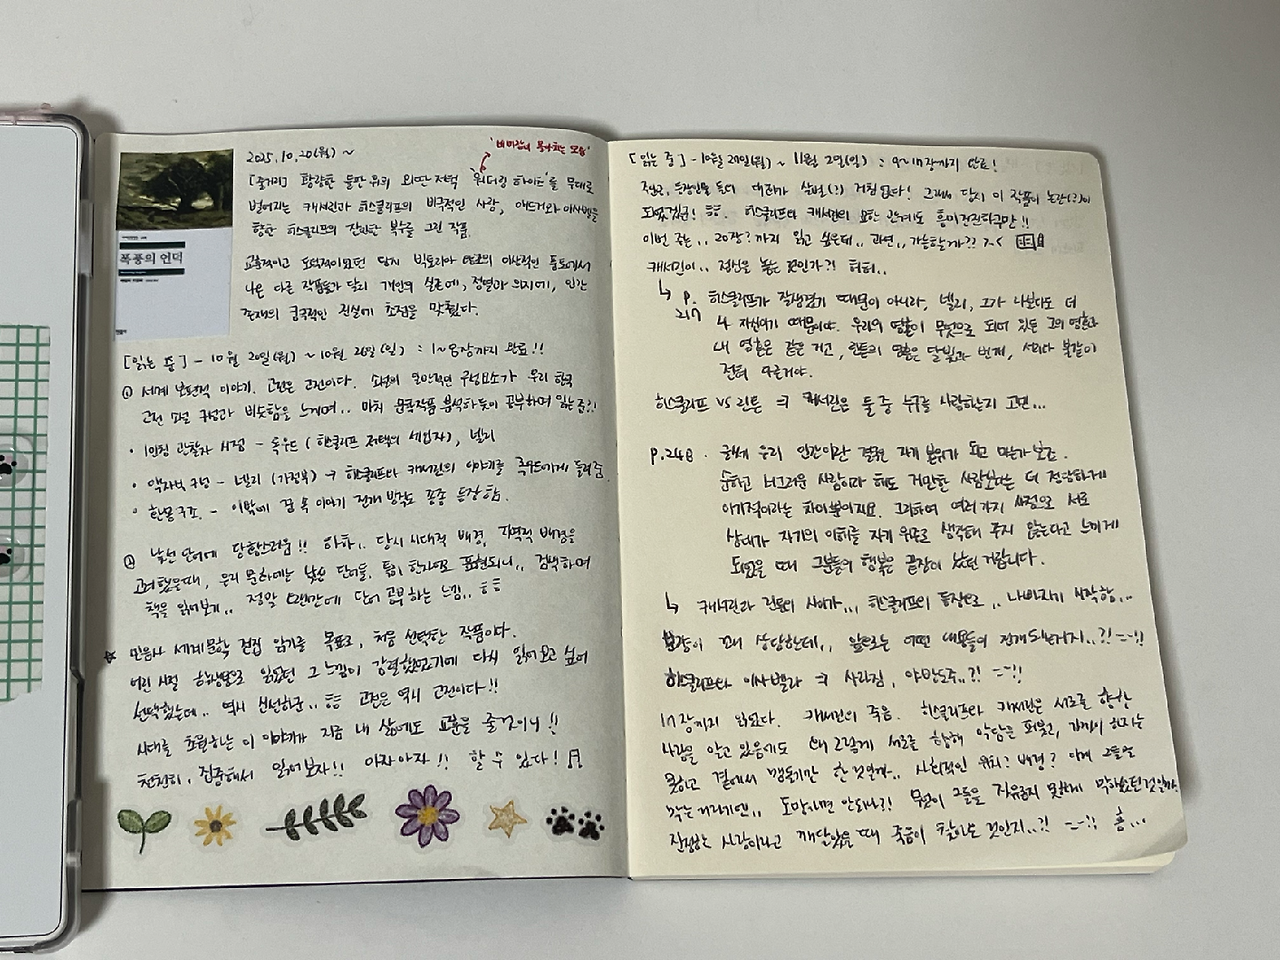 2025.10.20(월) ~
'비바람이 몰아치는 모습'
[줄거리] 황량한 들판 위의 외딴 저택 '워더링 하이츠'를 무대로
벌어지는 캐서린과 히스클리프의 비극적인 사랑, 에드거와 이사벨을
향한 히스클리프의 잔인한 복수를 그린 작품.
폭풍의 언덕
교훈적이고 도덕적이었던 당시 빅토리아 시대의 이상적인 풍토에서
나온 다른 작품들과 달리 개인의 실존에, 정열과 의지에, 인간
존재의 궁극적인 진실에 초점을 맞췄다.
[읽는 중] - 10월 20일(월) ~ 10월 26일(일) : 1~8장까지 완료!!
① 세계 보편적 이야기. 고전은 고전이다. 소설의 일반적인 구성요소가 우리 한국
고전 소설 구성과 비슷함을 느끼며.. 마치 문학작품 분석하듯이 공부하며 읽는 중?!
• 1인칭 관찰자 시점 - 록우드 (히스클리프 저택의 세입자), 넬리
• 액자식 구성 - 넬리 (가정부) → 히스클리프와 캐서린의 이야기를 록우드에게 들려줌.
• 환몽구조. - 이밖에 꿈 속 이야기 전개 방식도 종종 등장함.
② 낯선 단어에 당황스러움!! 하하.. 당시 시대적 배경, 지역적 배경을
고려했을때, 우리 문화에는 낯선 단어들, 특히 한자어로 표현되니.. 검색하며
책을 읽어보기.. 정말 오랜만에 단어 공부하는 느낌.. ㅎㅎ
☆ 민음사 세계문학 전집 읽기를 목표로, 처음 선택한 작품이다.
어린 시절 학생용으로 읽었던 그 느낌이 강렬했었기에 다시 읽어보고 싶어
선택했는데.. 역시 신선하군.. ㅎㅎ 고전은 역시 고전이다!!
시대를 초월하는 이 이야기가 지금 내 삶에도 교훈을 줄것이니!!
천천히, 집중해서 읽어보자!! 아자아자!! 할 수 있다!
[읽는 중] - 10월 27일(월) ~ 11월 2일(일) : 9~17장까지 완료!
전반, 등장인물 들의 대화가 살벌(?) 거침없다! 그래서 당시 이 작품이 논란(?)이
되었겠군! ㅎㅎ. 히스클리프와 캐서린의 묘한 관계도 흥미진진하구만!!
이번 주는.. 20장?까지 읽고 싶은데.. 과연.. 가능할까??
캐서린이.. 정신을 놓은 것인가?! 허허..
↳ p.217 히스클리프가 잘생겼기 때문이 아니라, 넬리, 그가 나보다도 더
나 자신이기 때문이야. 우리의 영혼이 무엇으로 되어 있든 그의 영혼과
내 영혼은 같은 거고, 린튼의 영혼은 달빛과 번개, 서리와 불같이
전혀 다른거야.
히스클리프 vs 린튼 ⇒ 캐서린은 둘 중 누구를 사랑하는지 고민...
p.248. 글쎄 우리 인간이란 결국은 자기 본위가 되고 마는가 보죠.
순하고 너그러운 사람이라 해도 거만한 사람보다는 더 정당하게
이기적이라는 차이뿐이지요. 그리하여 여러가지 사정으로 서로
상대가 자기의 이해를 자기 위주로 생각해 주지 않는다고 느끼게
되었을 때 그분들의 행복은 끝장이 났던 거랍니다.
↳ 캐서린과 린튼의 사이가... 히스클리프의 등장으로.. 나빠지기 시작함...
분량이 꽤 상당한데.. 앞으로는 어떤 내용들이 전개되려는지..?!
히스클리프와 이사벨라 ⇒ 사라짐, 야반도주..?!
17장까지 읽었다. 캐서린의 죽음. 히스클리프와 캐서린은 서로를 향한
사랑을 알고 있음에도 왜 그렇게 서로를 향해 악담을 퍼붓고, 가까이 하지는
못하고 곁에서 맴돌기만 한 것일까.. 사회적인 위치? 배경? 이게 그들을
막는 거라기엔.. 도망가면 안되나?! 무엇이 그들을 자유롭지 못하게 막아섰던 것일까
진정한 사랑이라고 깨달았을 때 죽음이 찾아온 것인지..?! 흠...